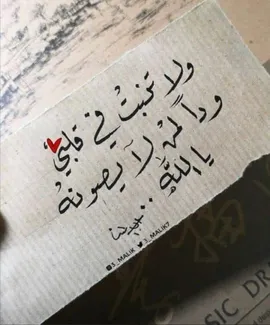 ولا تنبت في قلبي
وداً لمن لا يصونه
يا الله ..
S_MALIK S_MALIK7
SIC DRA